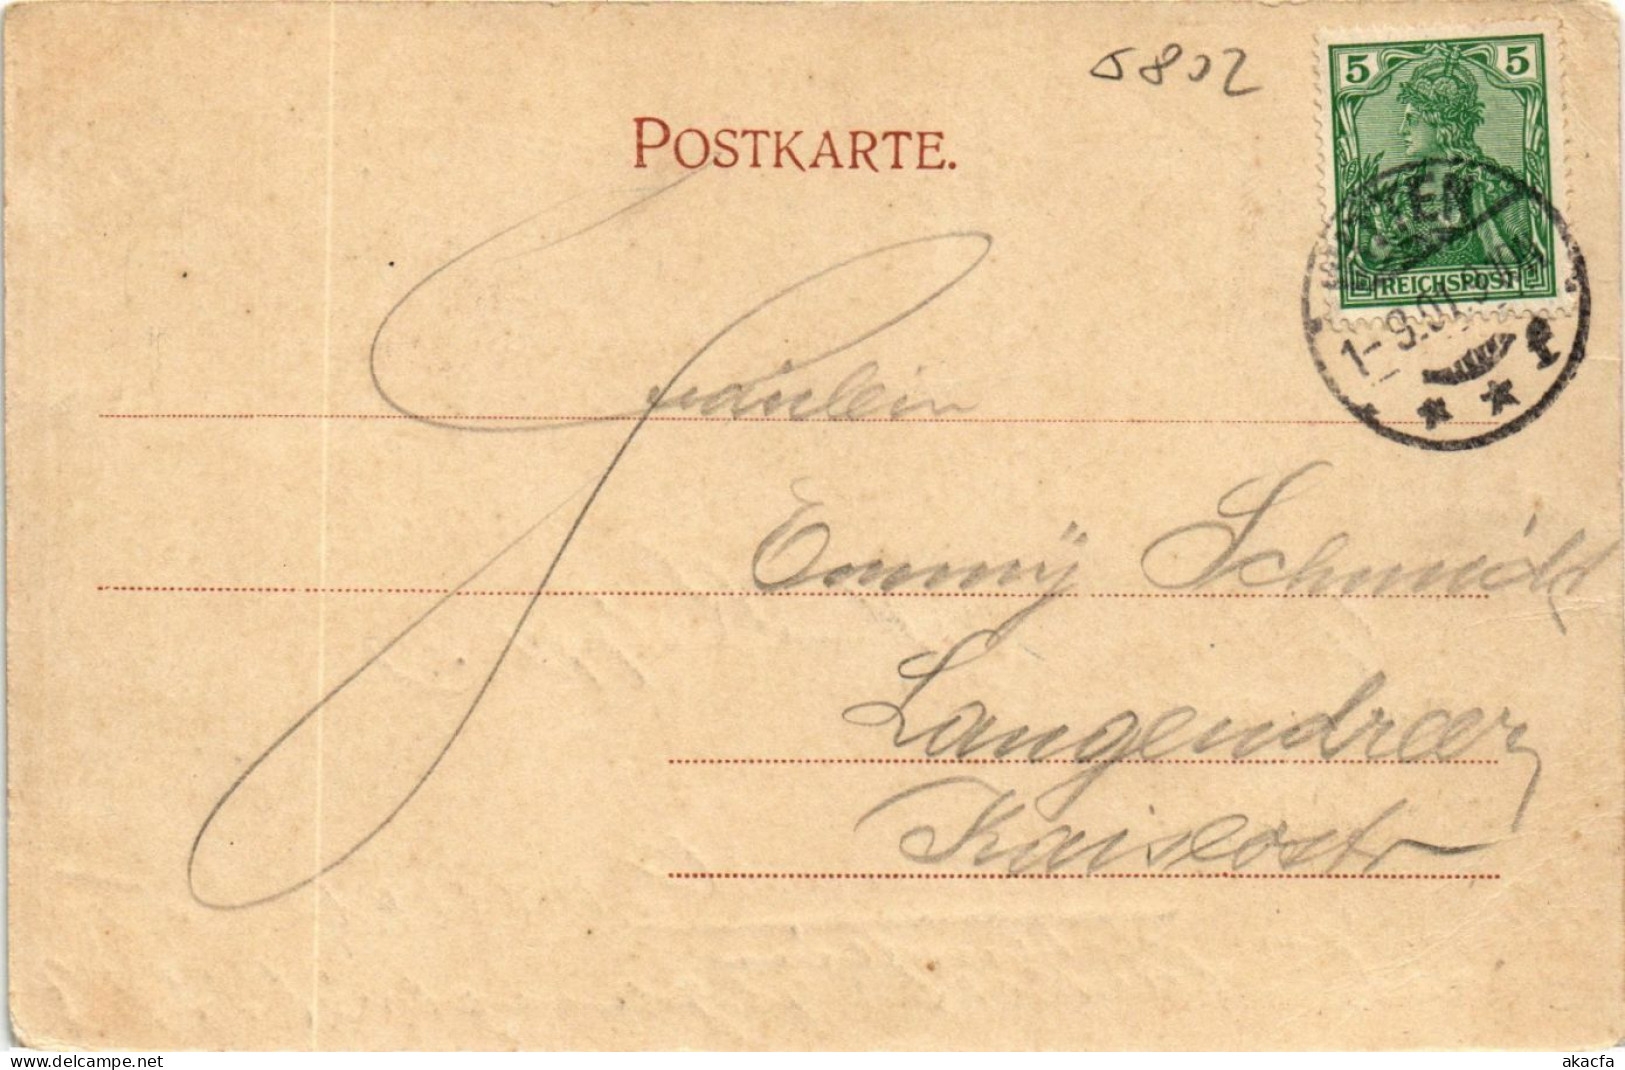 5802
POSTKARTE.
5 5
REICHSPOST
1-9.01
Fräulein
Emmÿ Schmidt
Langendreer
Kaiserstr
www.delcampe.net
akacfa